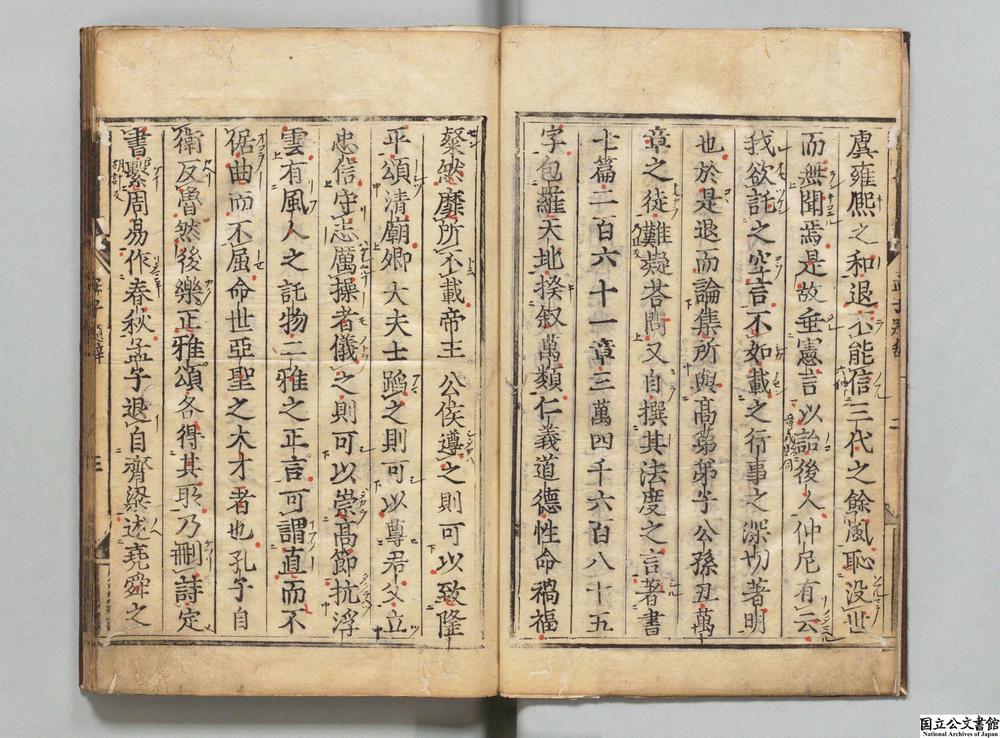 虞雍熙之和退不能信三代之餘風恥没世
而無聞焉是故垂憲言以詒後人仲尼有云
我欲託之空言不如載之行事之深切著明
也於是退而論集所與高弟弟子公孫丑萬
章之徒難疑荅問又自撰其法度之言著書
七篇二百六十一章三萬四千六百八十五
字包羅天地揆叙萬類仁義道德性命禍福
粲然靡所不載帝王公侯遵之則可以致隆
平頌清廟卿大夫士蹈之則可以尊君父立
忠信守志厲操者儀之則可以崇高節抗浮
雲有風人之託物二雅之正言可謂直而不
倨曲而不屈命世亞聖之大才者也孔子自
衛反魯然後樂正雅頌各得其所乃刪詩定
書繫周易作春秋孟子退自齊梁述堯舜之
国立公文書館
National Archives of Japan